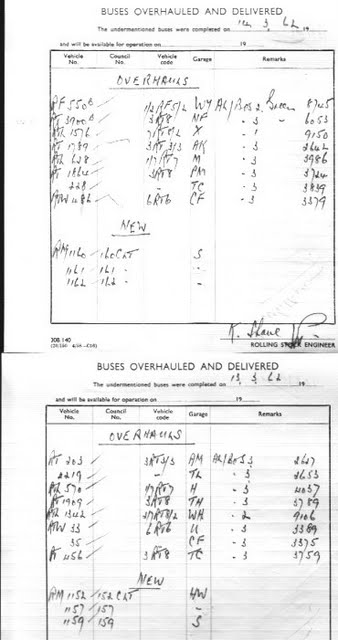 BUSES OVERHAULED AND DELIVERED
The undermentioned buses were completed on 12 . 3 . 62 19
and will be available for operation on 19
Vehicle No. Council No. Vehicle code Garage Remarks
OVERHAULS
RF 550 1/2RF5/2 WY AL/Bos 2 Green 8745
RT 3900 3RT8 NF - 3 6053
1576 7/ X - 1 9150
RT 1789 3RT3/3 AK - 3 2642
628 M - 3 3986
RT 3RT8 PM - 3 3724
228 - TC - 3 3839
486 6RT6 CF - 3 3379
NEW
RM 1160 160CLT S
1161 161 - -
1162 162 - -
JOB 140
K. Shave
ROLLING STOCK ENGINEER
BUSES OVERHAULED AND DELIVERED
The undermentioned buses were completed on 13 . 3 . 62 19
and will be available for operation on 19
Vehicle No. Council No. Vehicle code Garage Remarks
OVERHAULS
RT 203 3RT3/3 AM AL/Bos 3 2627
2219 - TL - 3 2653
570 H - 3 4037
RT 1909 3RT8 TH - 3 3789
1342 WH - 2 9106
33 6RT6 U - 3 3389
35 CF - 3 3375
RT 456 3RT8 TC - 3 3759
NEW
RM 1152 152CLT HW
1157 157 -
1159 159 S